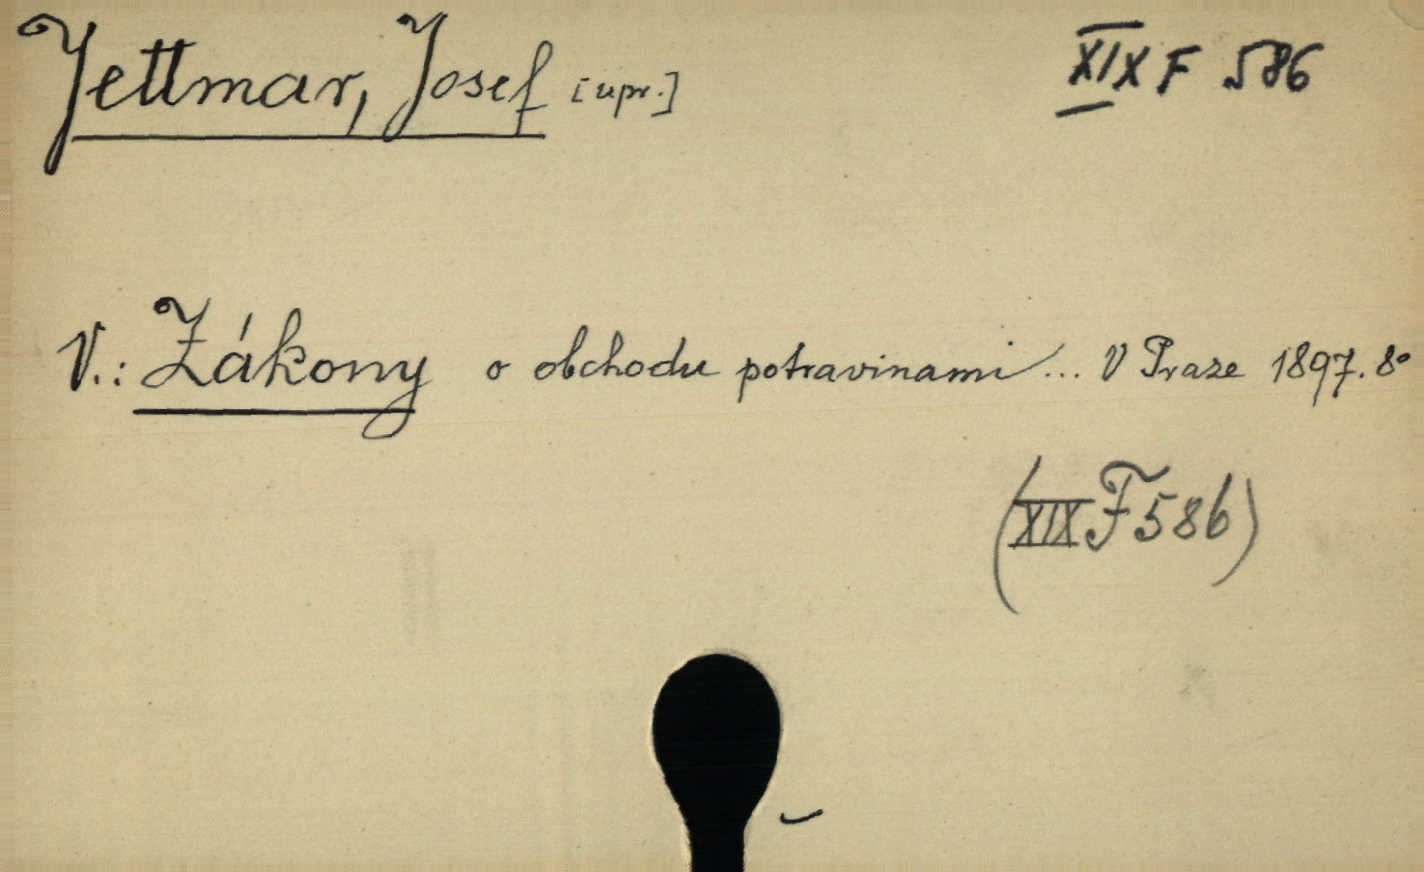 Jettmar, Josef [upr.] XIX F 586
V.: Zákony o obchodu potravinami... V Praze 1897. 8°
(XIX F 586)